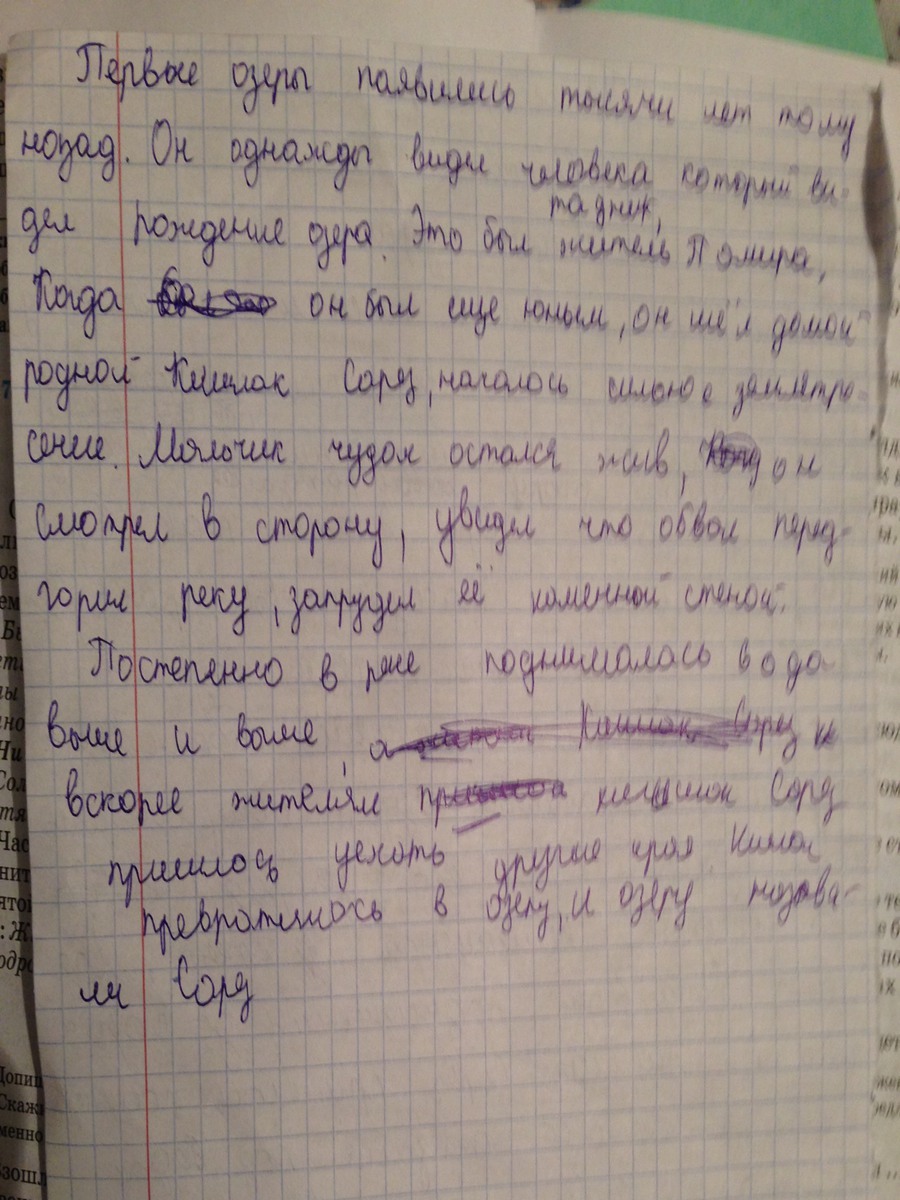 Первые озеры паявились тысячи лет тому
нозад. Он однажды видел человека который ви-
таджик,
дел рождение озера. Это был житель Помира,
Когда он был еще юным, он шёл домой
родной Кишлак Сарз, началось сильное землетро-
сение. Мяльчик чудом остался жив, он
смотрел в сторону, увидел что обвал перед-
горил реку, запрудил её каменной стеной.
Постепенно в реке поднималась вода
выше и выше, а Сарз и
вскорее жителям кишлак Сарз
пришлось уехать другие края Кишлак
превратилось в озеру, и озеру назва-
ли Сарз